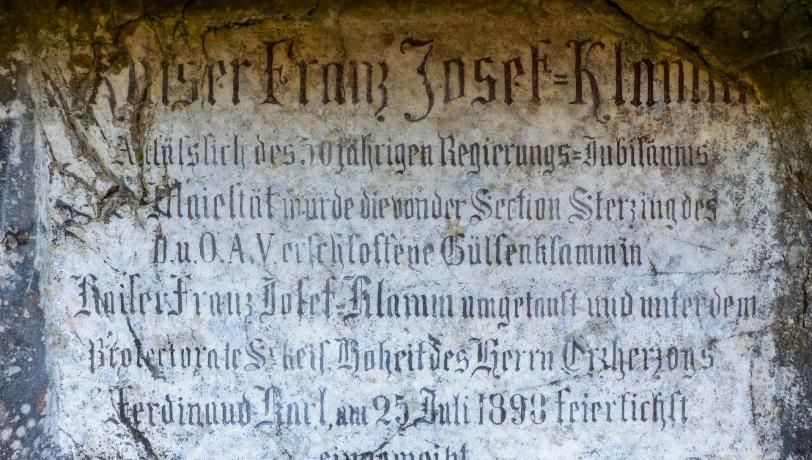 Kaiser Franz Josef=Klamm
Anlässlich des 50jährigen Regierungs=Jubiläums
Majestät wurde die von der Section Sterzing des
D.u.O.A.V erschlossene Gilfenklamm in
Kaiser Franz Josef=Klamm umgetauft und unter dem
Protectorate Sr keis. Hoheit des Herrn Erzherzogs
Ferdinand Karl, am 25 Juli 1898 feierlichst
eingeweiht